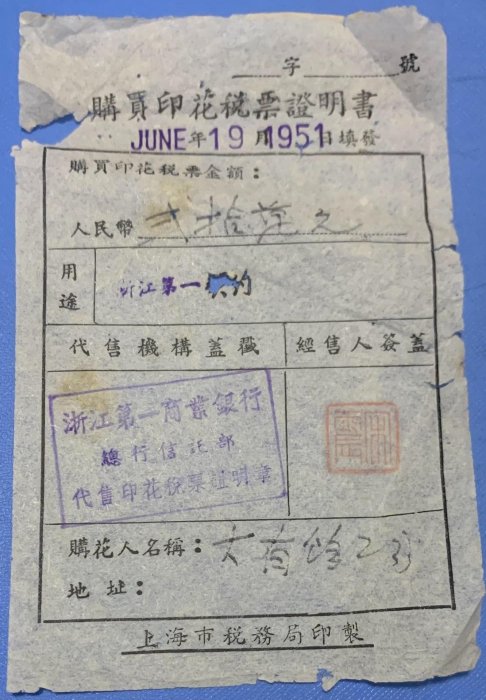 字 號
購買印花税票證明書
JUNE年19月1951日填發
購買印花税票金額：
人民幣 弍拾萬元
用途 浙江第一 約
代售機構蓋戳 經售人簽蓋
浙江第一商業銀行
總行信託部
代售印花税票証明書
購花人名稱： 大有餘
地址：
上海市税務局印製